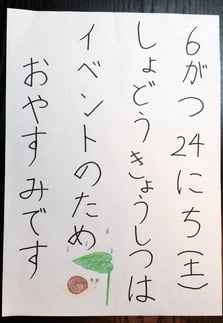 6がつ24にち(土)
しょどうきょうしつは
イベントのため
おやすみです